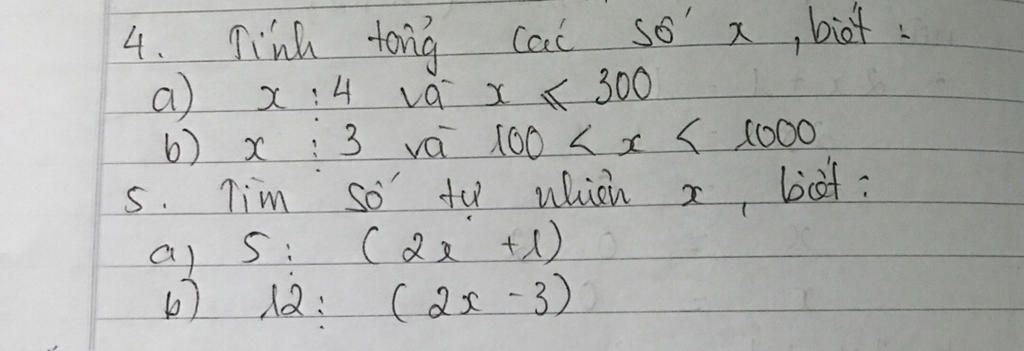 4. Tính tổng các số x, biết:
a) x ⋮ 4 và x ⩽ 300
b) x ⋮ 3 và 100 < x < 1000
5. Tìm số tự nhiên x, biết:
a) 5 ⋮ (2x + 1)
b) 12 ⋮ (2x - 3)